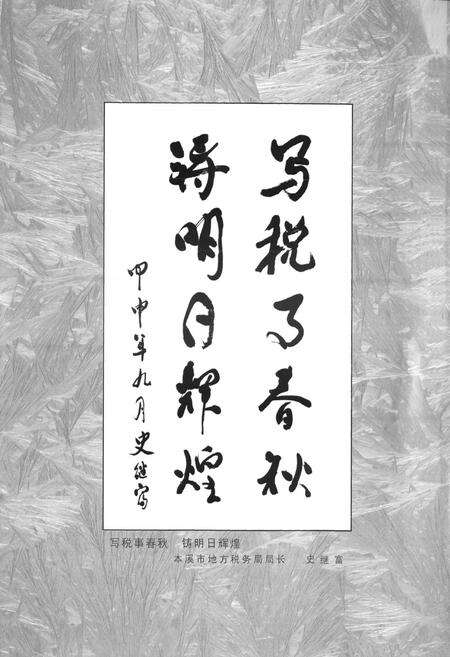 写税事春秋
铸明日辉煌
甲申年九月史继富
写税事春秋 铸明日辉煌
本溪市地方税务局局长 史继富